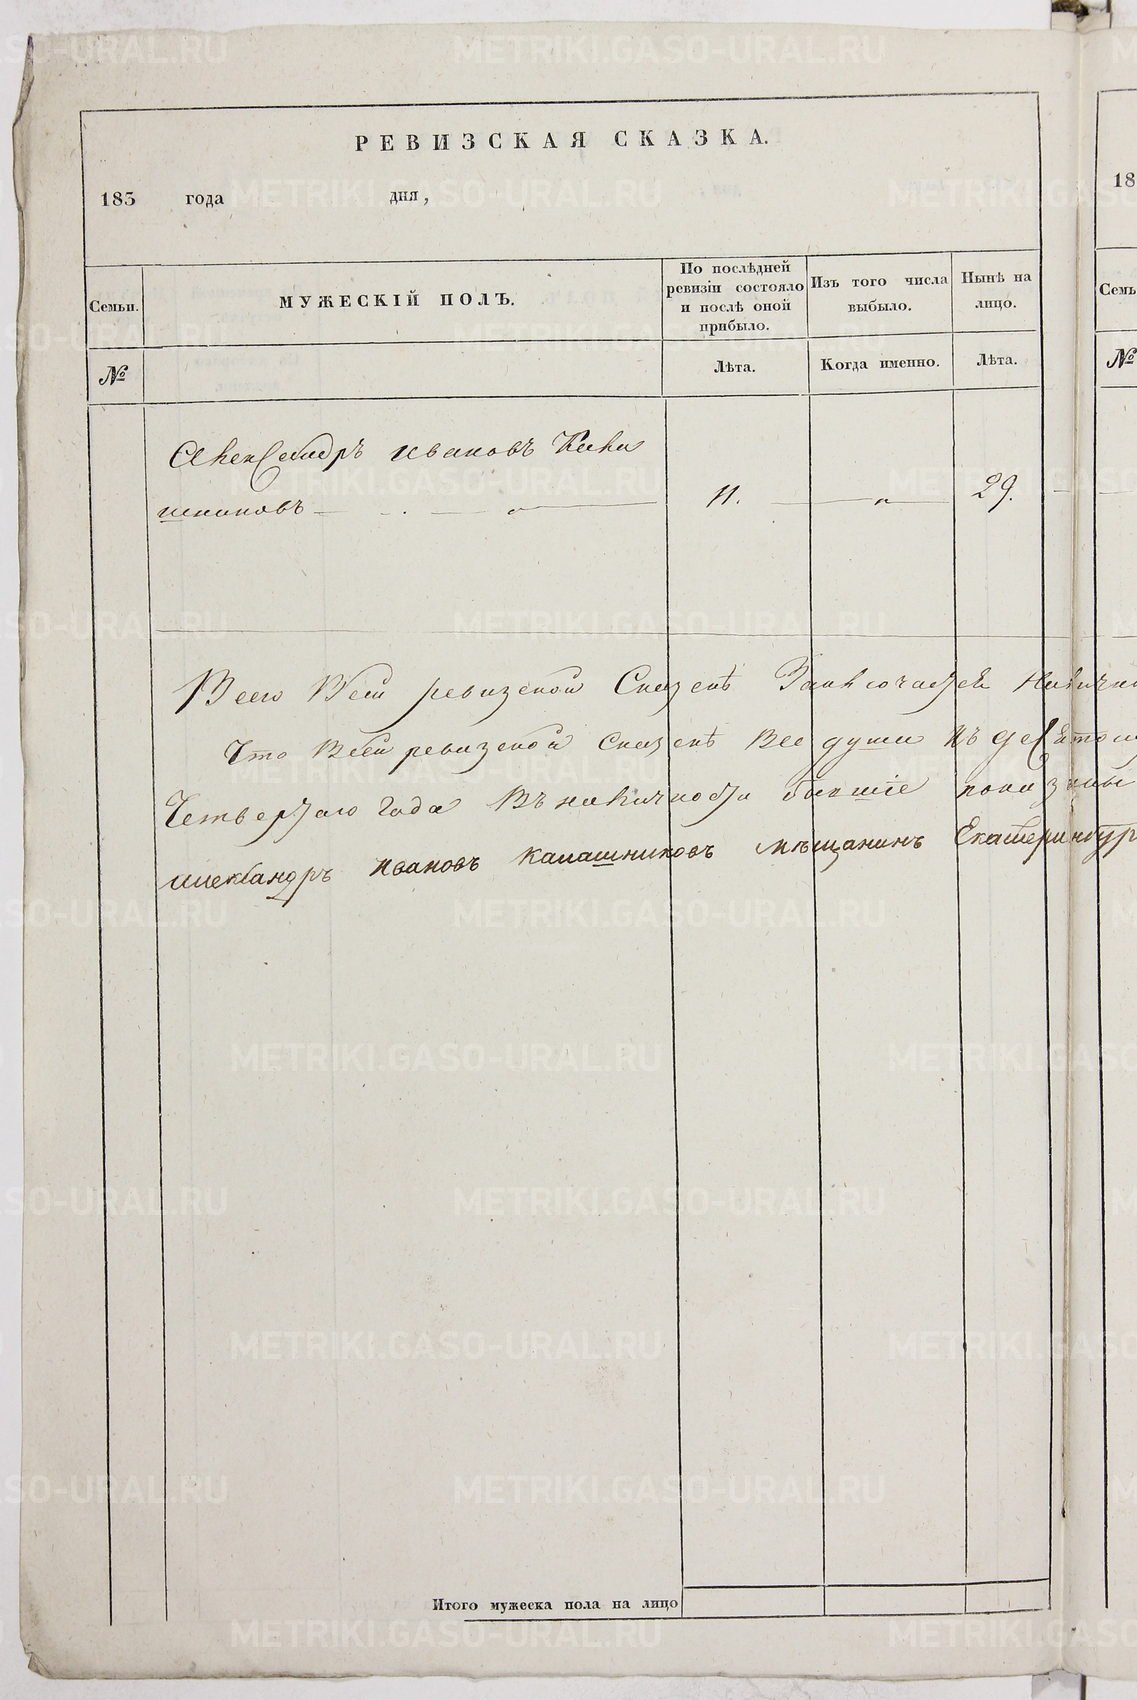 РЕВИЗСКАЯ СКАЗКА.
183 года дня,
18
Семьи.
МУЖЕСКІЙ ПОЛЪ.
По послѣдней
ревизіи состояло
и послѣ оной
прибыло.
Изъ того числа
выбыло.
Нынѣ на
лицо.
№
Лѣта.
Когда именно.
Лѣта.
Семь
№
Александръ Ивановъ Кала
шниковъ
11.
29.
Всего Всей ревизской Сказкѣ Заключается
Что Всей ревизской Сказкѣ Все души къ
Четвертаго Года Въ наличности бывшіе показаны
Александръ Ивановъ Калашниковъ мѣщанинъ Екатеринбур
Итого мужеска пола на лицо
METRIKI.GASO-URAL.RU